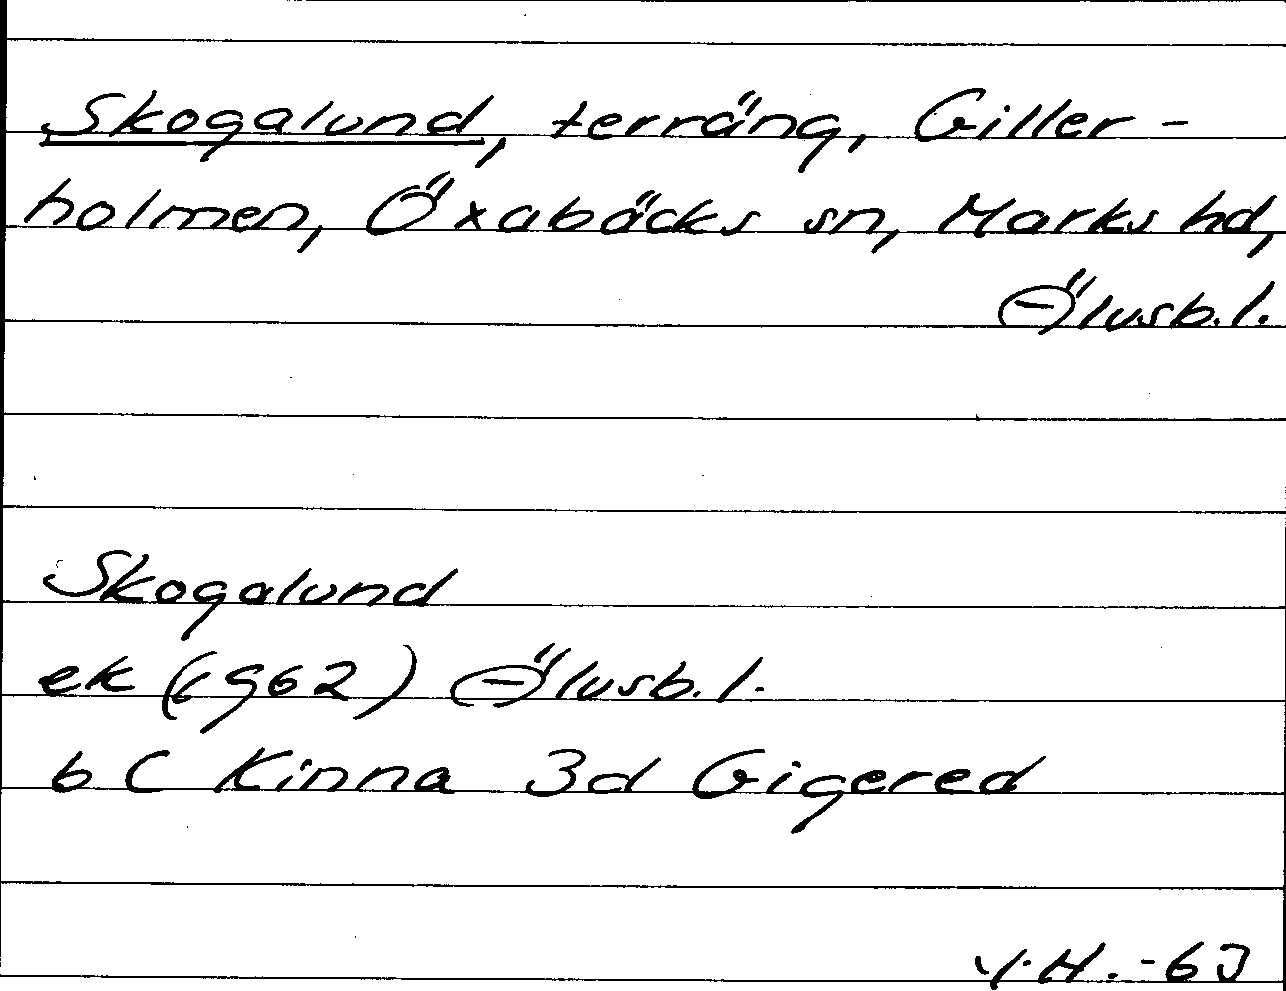 Skogalund, terräng, Giller-
holmen, Öxabäcks sn, Marks hd,
Älvsb. l.
Skogalund
ek (1962) Älvsb. l.
6 C Kinna 3d Gigered
V.H. -63